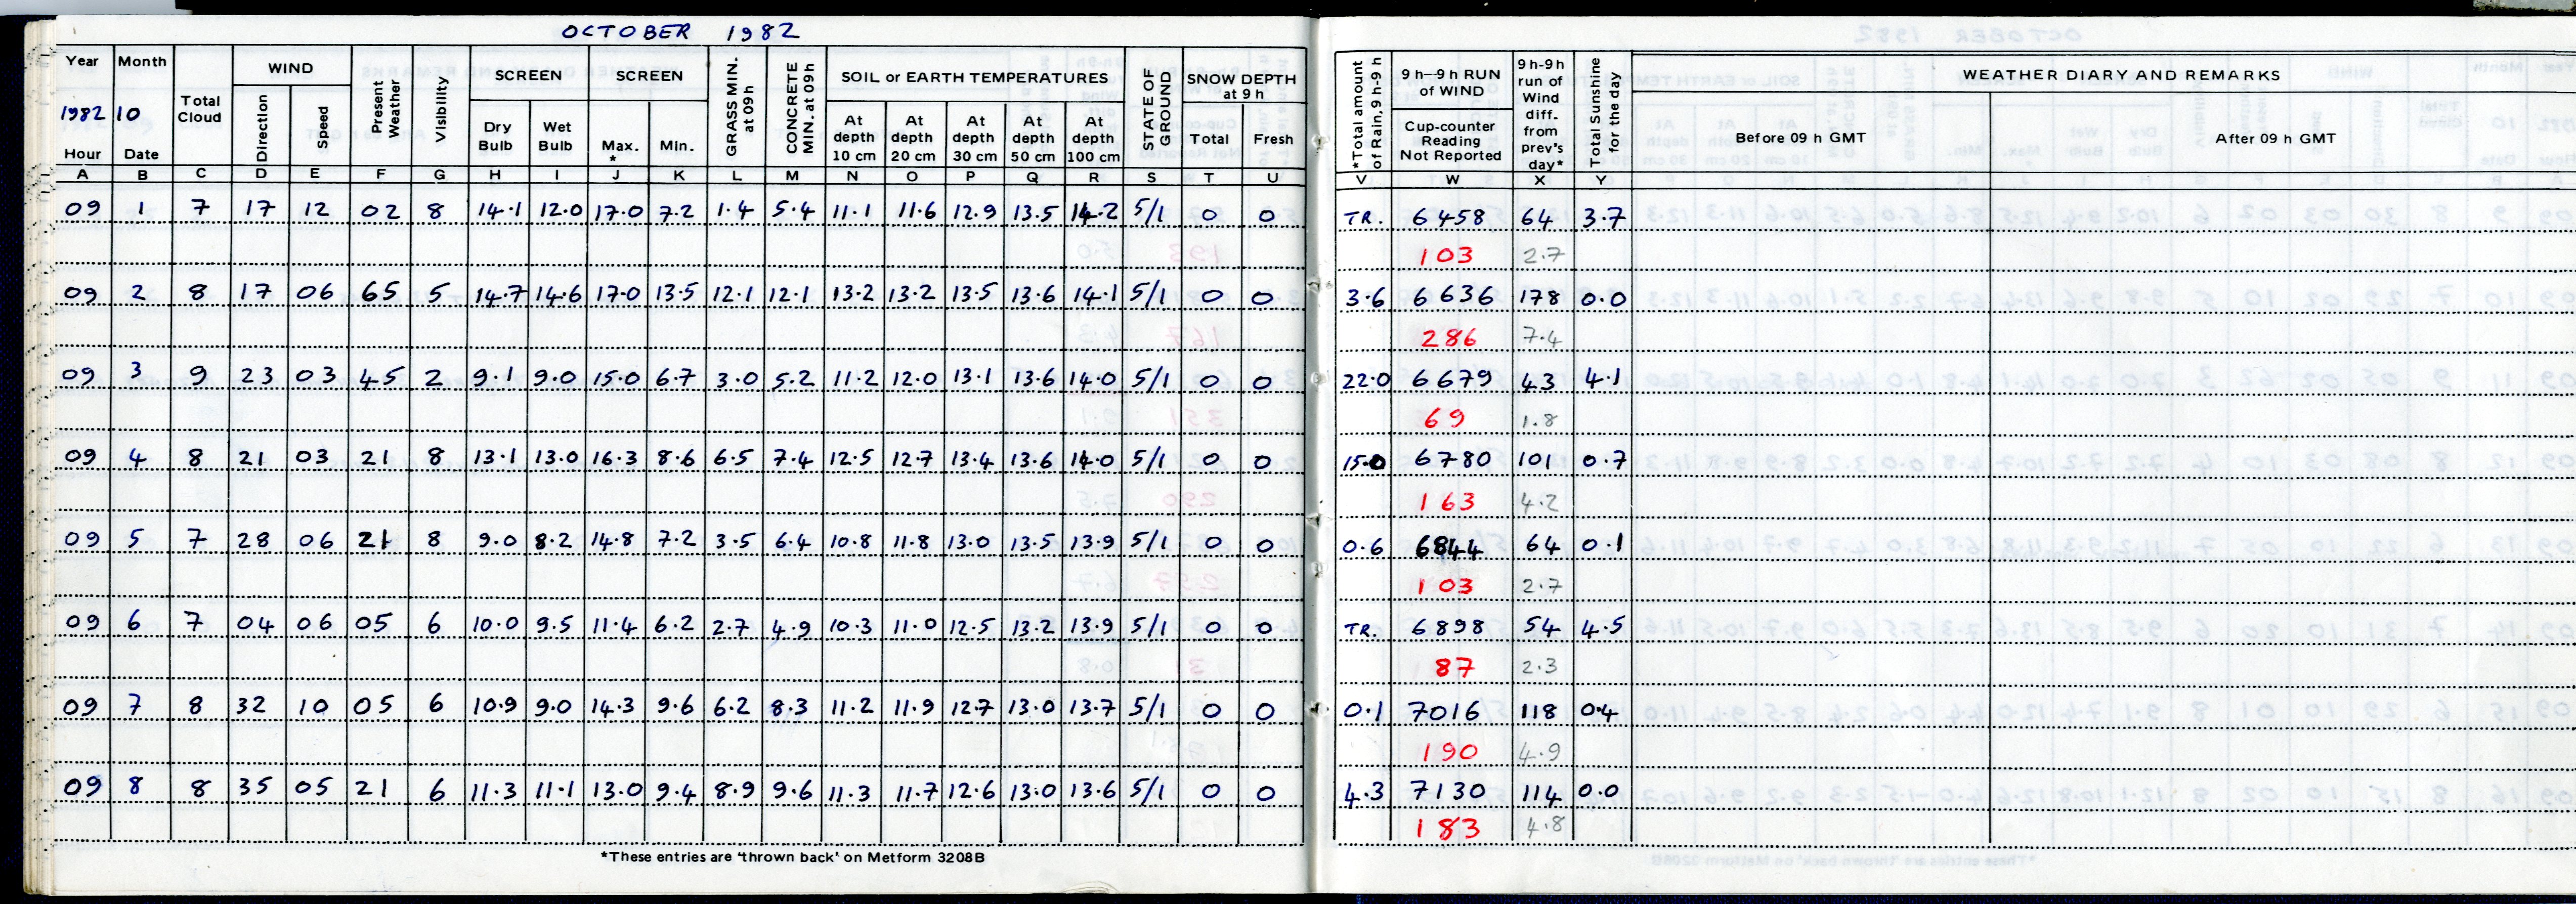 OCTOBER 1982
Year Month Total Cloud WIND Present Weather Visibility SCREEN SCREEN GRASS MIN. at 09h CONCRETE MIN. at 09h SOIL or EARTH TEMPERATURES STATE OF GROUND SNOW DEPTH at 9 h *Total amount of Rain, 9h-9h 9 h—9 h RUN of WIND 9h-9h run of Wind diff. from prev's day* Total Sunshine for the day WEATHER DIARY AND REMARKS
1982 10 Direction Speed Dry Bulb Wet Bulb Max. * Min. At depth 10 cm At depth 20 cm At depth 30 cm At depth 50 cm At depth 100 cm Total Fresh Cup-counter Reading Not Reported Before 09 h GMT After 09 h GMT
Hour Date
A B C D E F G H I J K L M N O P Q R S T U V W X Y
09 1 7 17 12 02 8 14.1 12.0 17.0 7.2 1.4 5.4 11.1 11.6 12.9 13.5 14.2 5/1 0 0 TR. 6458 64 3.7
103 2.7
09 2 8 17 06 65 5 14.7 14.6 17.0 13.5 12.1 12.1 13.2 13.2 13.5 13.6 14.1 5/1 0 0 3.6 6636 178 0.0
286 7.4
09 3 9 23 03 45 2 9.1 9.0 15.0 6.7 3.0 5.2 11.2 12.0 13.1 13.6 14.0 5/1 0 0 22.0 6679 43 4.1
69 1.8
09 4 8 21 03 21 8 13.1 13.0 16.3 8.6 6.5 7.4 12.5 12.7 13.4 13.6 14.0 5/1 0 0 15.0 6780 101 0.7
163 4.2
09 5 7 28 06 21 8 9.0 8.2 14.8 7.2 3.5 6.4 10.8 11.8 13.0 13.5 13.9 5/1 0 0 0.6 6844 64 0.1
103 2.7
09 6 7 04 06 05 6 10.0 9.5 11.4 6.2 2.7 4.9 10.3 11.0 12.5 13.2 13.9 5/1 0 0 TR. 6898 54 4.5
87 2.3
09 7 8 32 10 05 6 10.9 9.0 14.3 9.6 6.2 8.3 11.2 11.9 12.7 13.0 13.7 5/1 0 0 0.1 7016 118 0.4
190 4.9
09 8 8 35 05 21 6 11.3 11.1 13.0 9.4 8.9 9.6 11.3 11.7 12.6 13.0 13.6 5/1 0 0 4.3 7130 114 0.0
183 4.8
*These entries are 'thrown back' on Metform 3208B